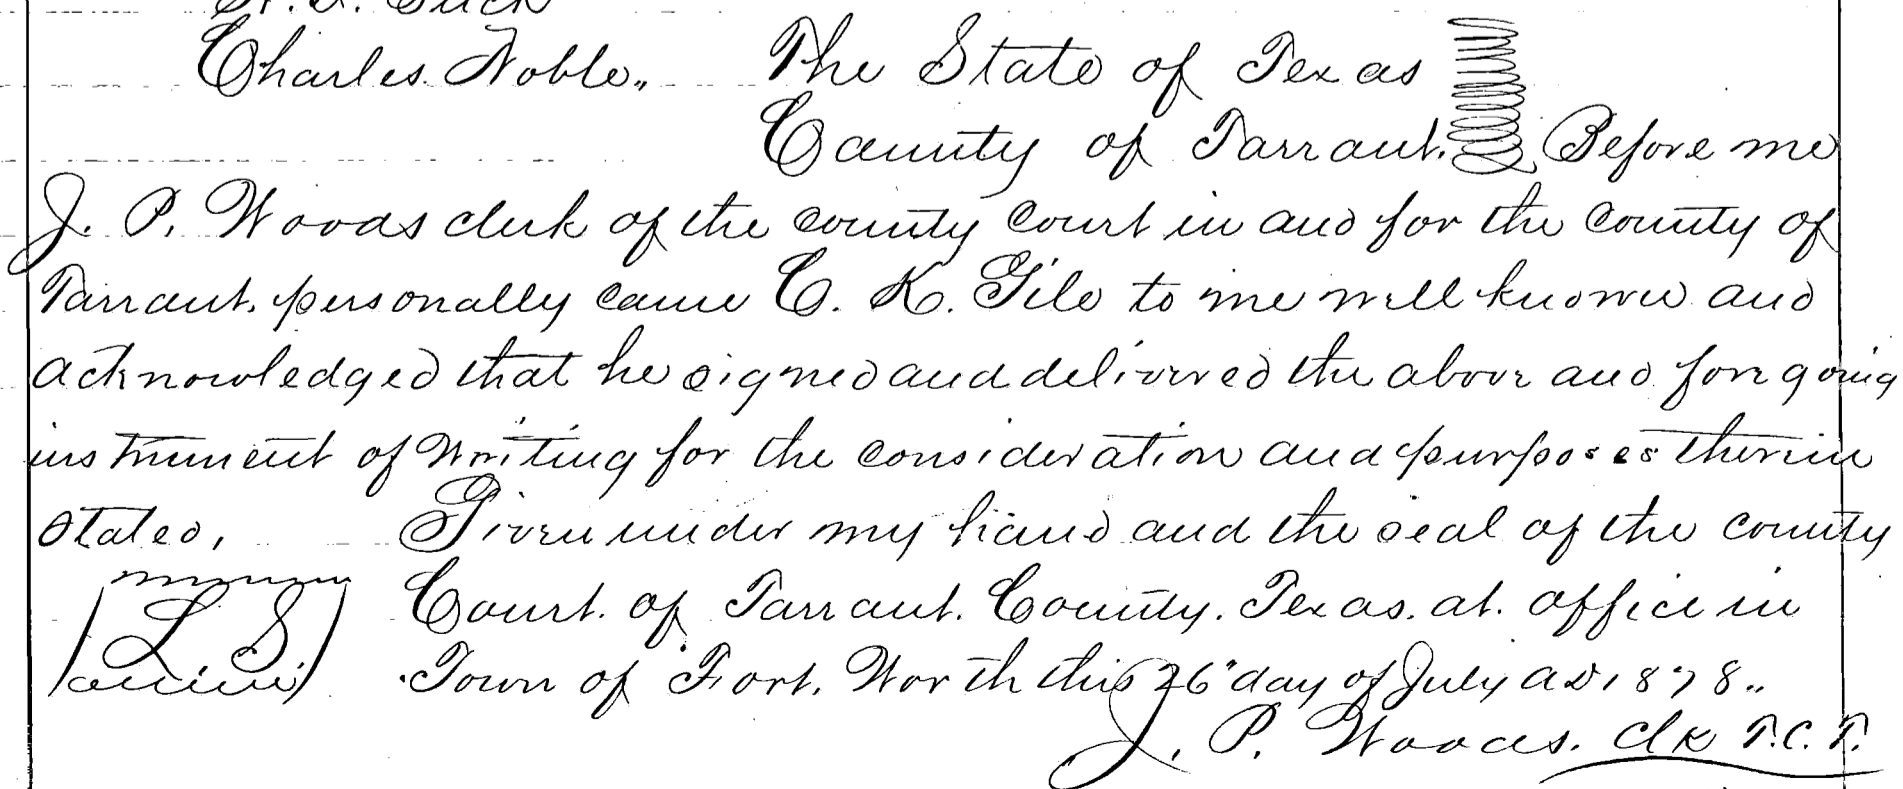 Charles Noble,, The State of Texas
County of Tarrant. Before me
J. P. Woods clerk of the county court in and for the county of
Tarrant. personally came C. K. Gile to me well known and
acknowledged that he signed and delivered the above and foregoing
instrument of writing for the consideration and purposes therein
stated, Given under my hand and the seal of the county
Court. of Tarrant. County. Texas. at. office in
L. S. Town of Fort. Worth this 26" day of July AD 1878..
J. P. Woods. Clk T.C.T.